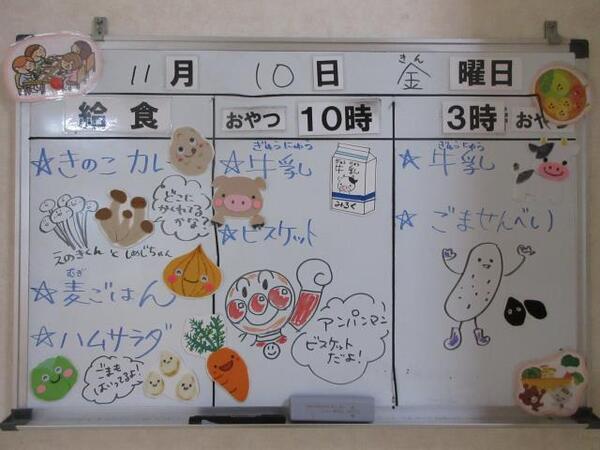 11月 10日 金曜日
きん
給食
おやつ 10時
3時 おやつ
☆きのこカレ
えのきくん と しめじちゃん
どこに
かくれてる
かな?
むぎ
☆麦ごはん
☆ハムサラダ
ごまも
はいってるよ!
ぎゅうにゅう
☆牛乳
ぎゅうにゅう
牛乳
みるく
☆ビスケット
アンパンマン
ビスケット
だよ!
ぎゅうにゅう
☆牛乳
☆ごませんべい